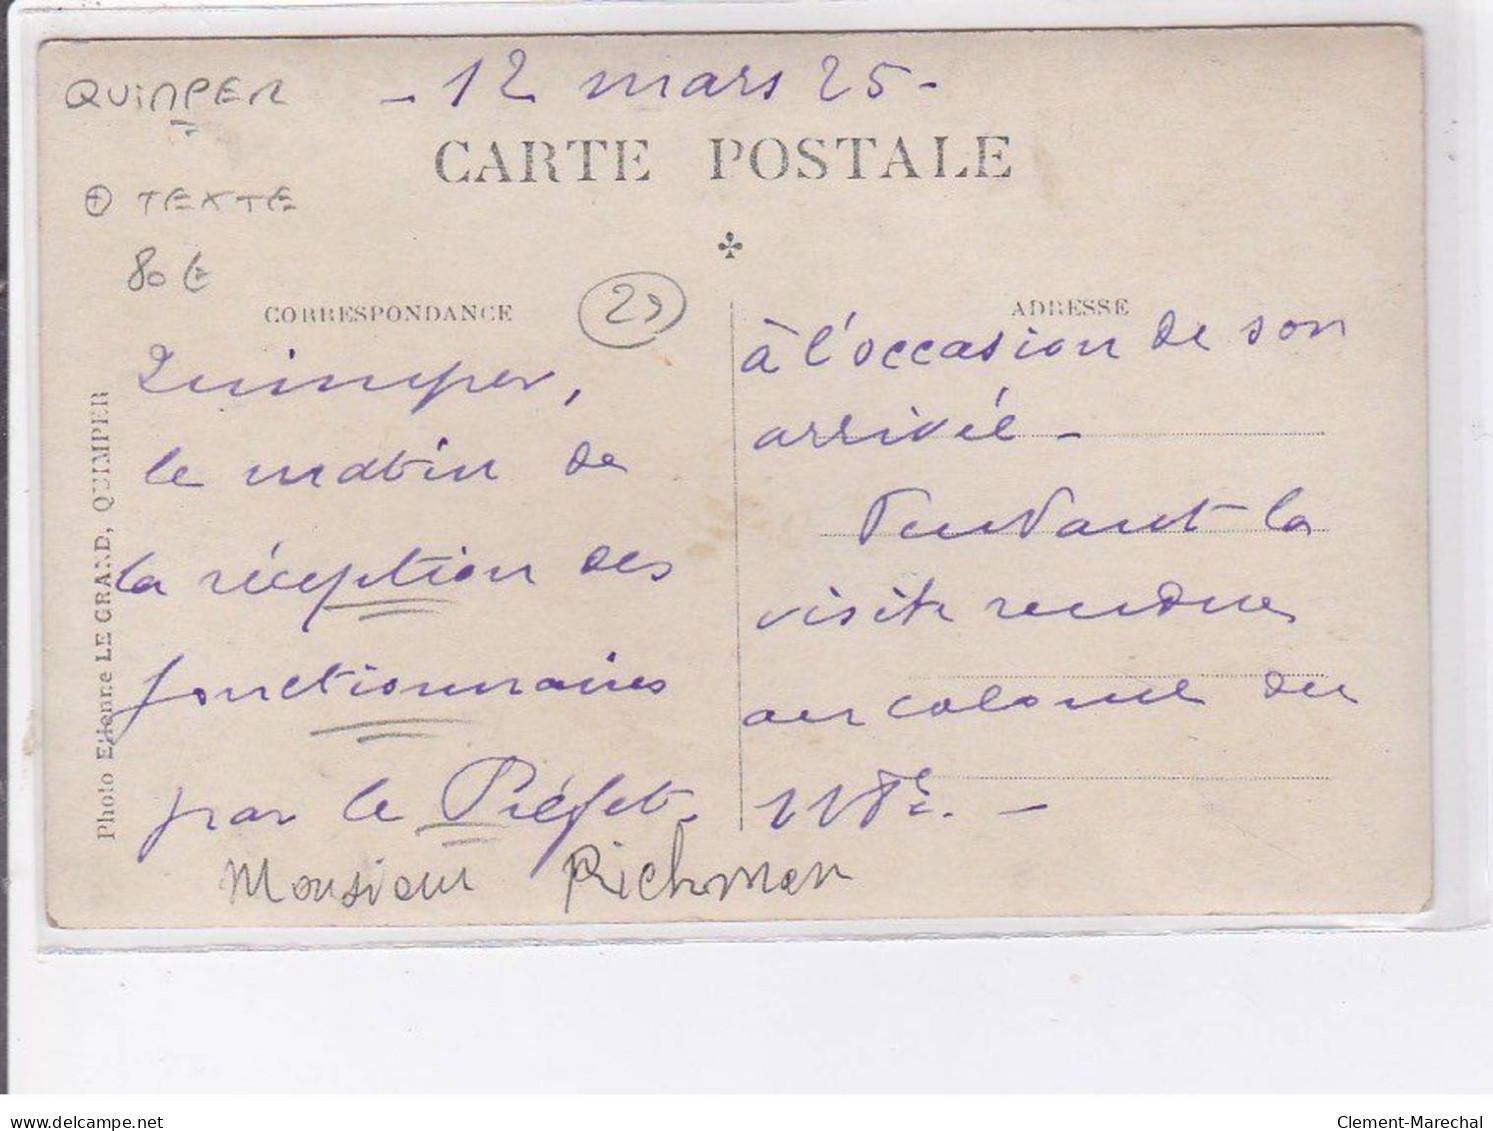 QUIMPER
- 12 mars 25 -
CARTE POSTALE
+ TEXTE
80 €
CORRESPONDANCE
29
ADRESSE
Quimper,
le matin de
la réception des
fonctionnaires
par le Préfet.
Monsieur Richman
à l'occasion de son
arrivée -
Pendant la
visite rendue
au colonel du
118e. -
Photo Etienne LE GRAND, QUIMPER
www.delcampe.net
Clement-Marechal